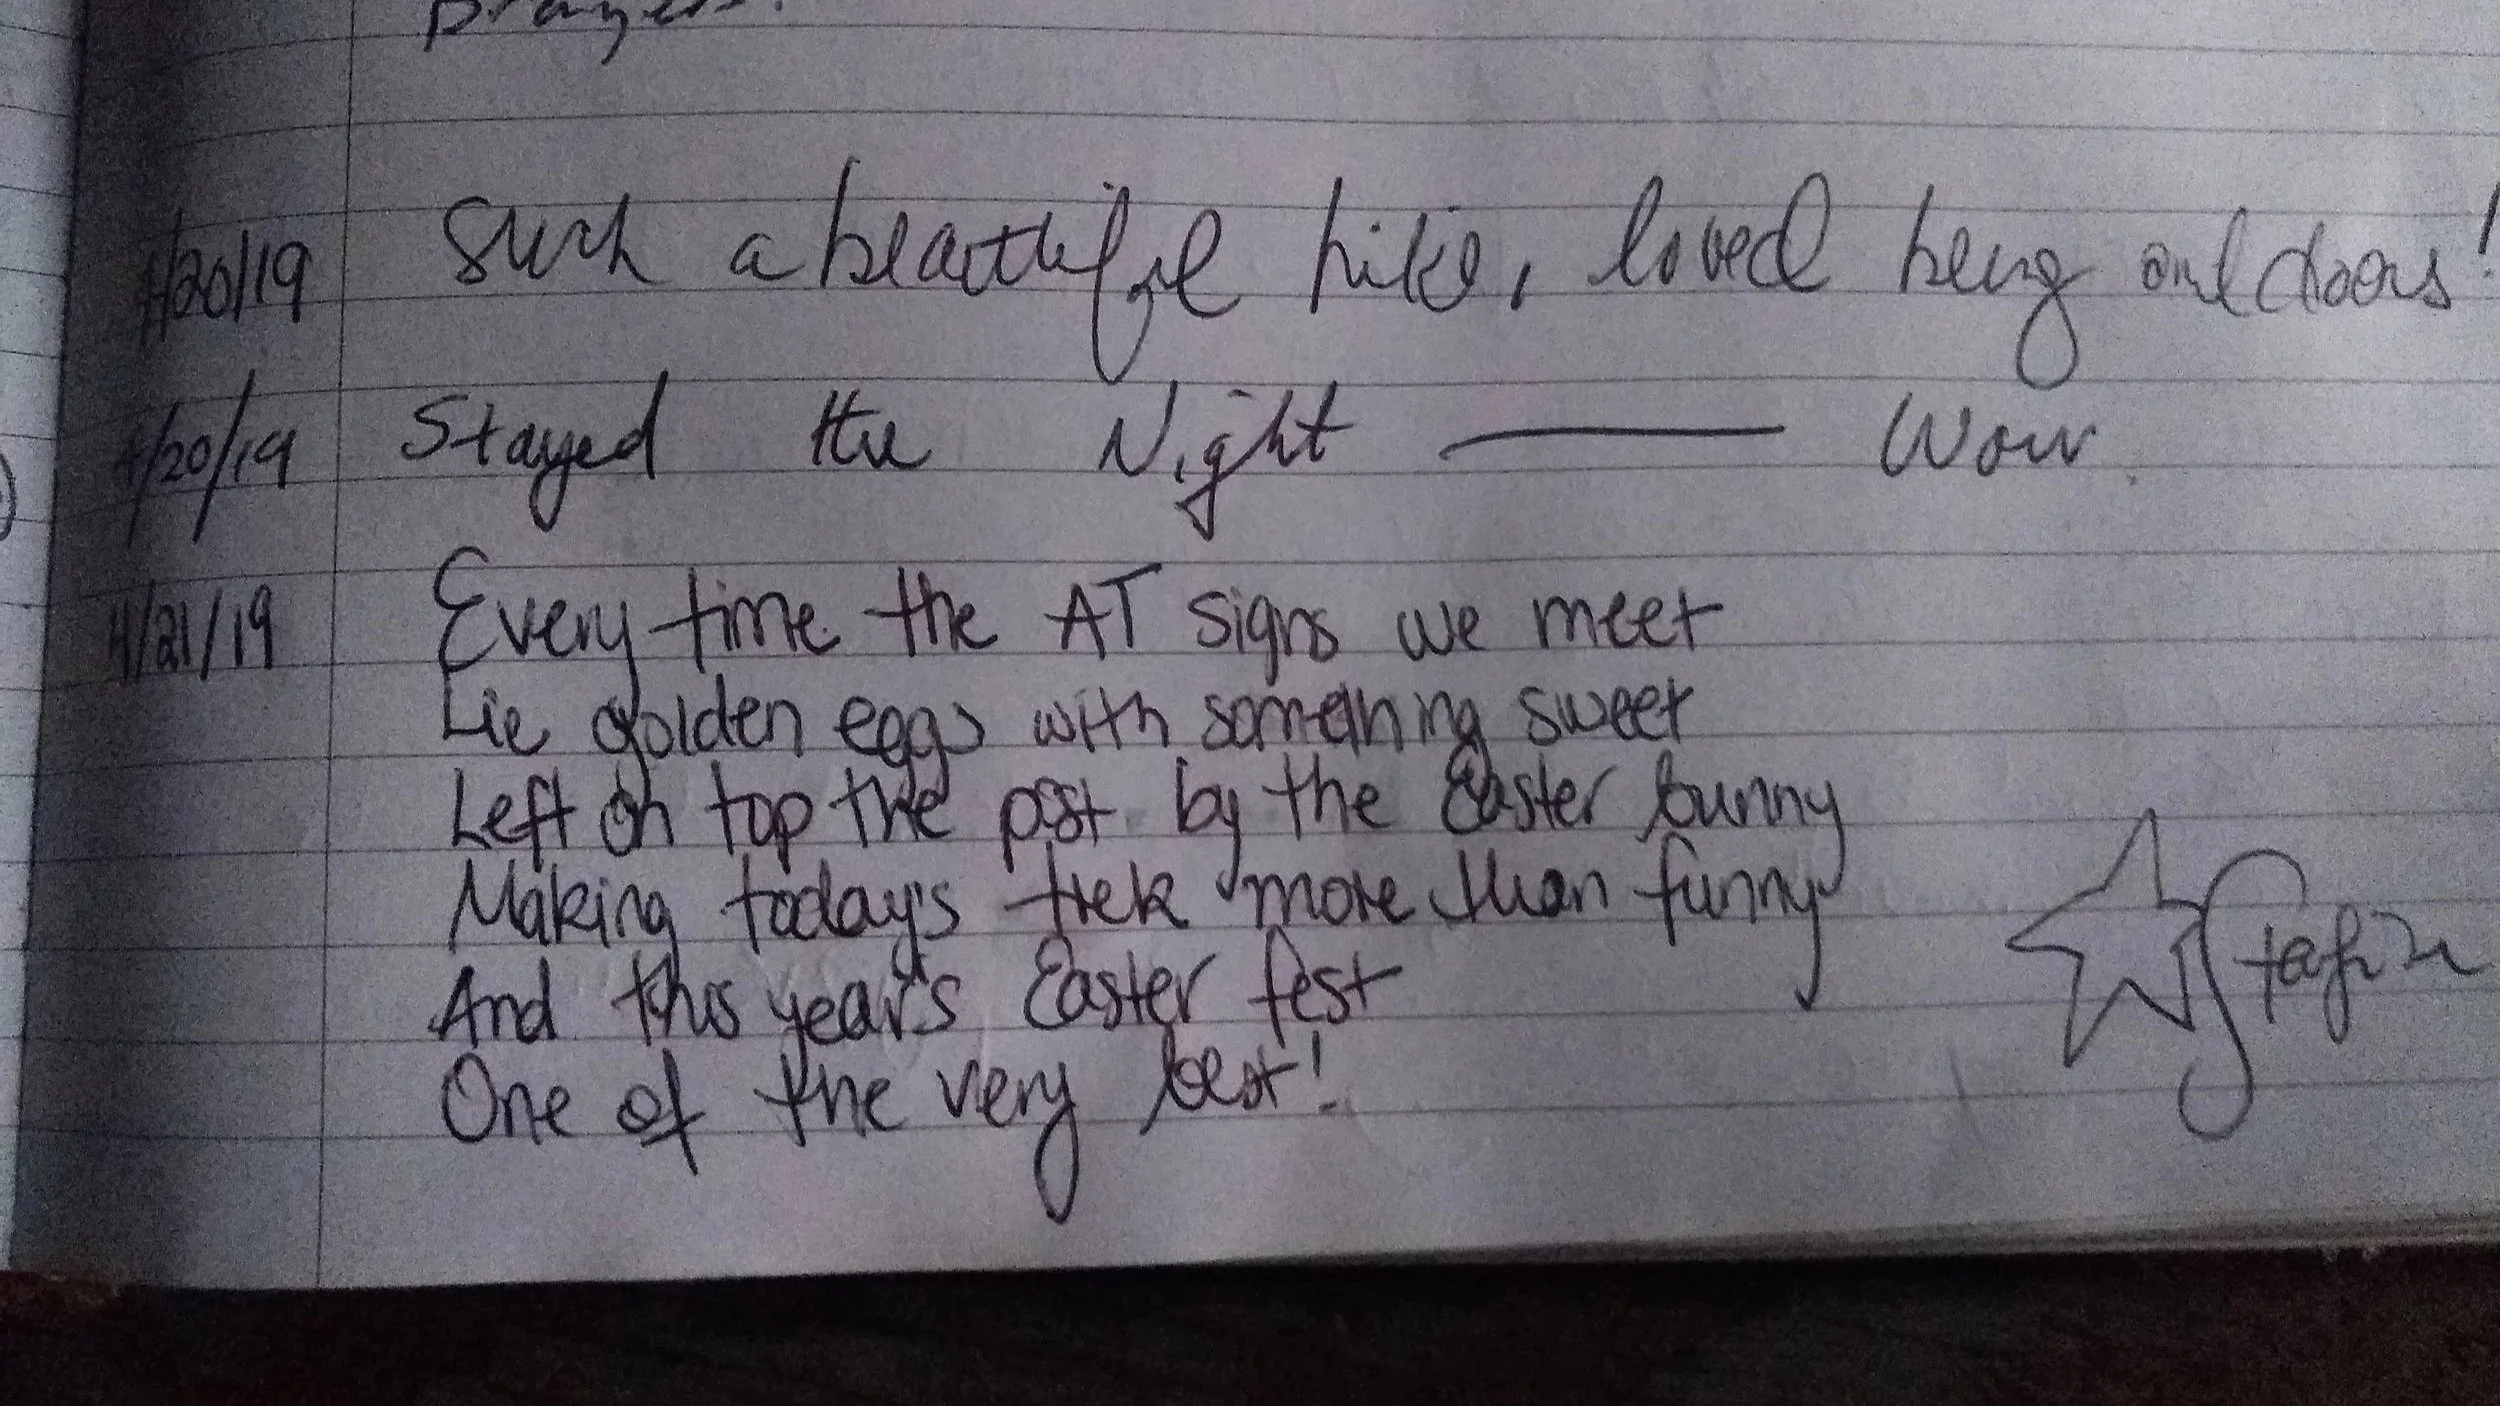 Prayers.
4/20/19 Such a beautiful hike, loved being outdoors!
4/20/19 Stayed the Night — Wow.
4/21/19 Every time the AT signs we meet
Lie golden eggs with something sweet
Left on top the post by the Easter bunny
Making today's trek more than funny
And this year's Easter fest
One of the very best!